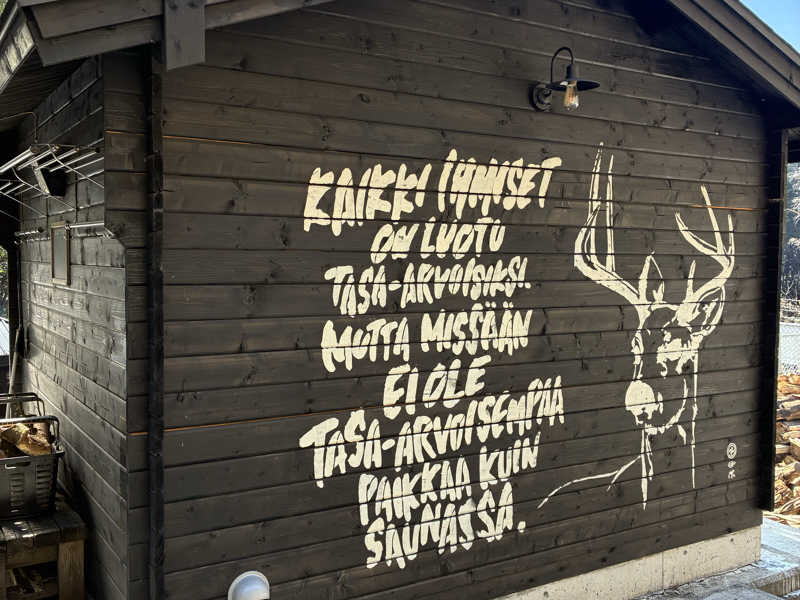 KAIKKI IHMISET
ON LUOTU
TASA-ARVOISIKSI.
MUTTA MISSÄÄN
EI OLE
TASA-ARVOISEMPAA
PAIKKAA KUIN
SAUNASSA.